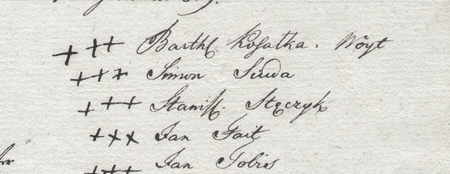 + ++ Barthł. Kosatka. Wóyt
+++ Simon Suda
+++ Stanisł. Stęczyk
+++ Jan Fait
+++ Jan Tobis